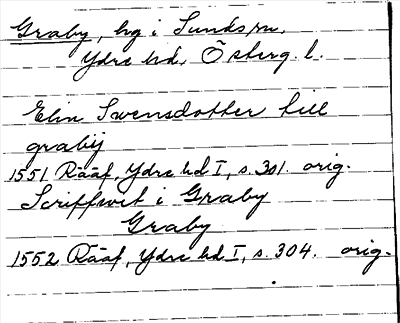 Graby, hg i Sunds sn.
Ydre hd, Österg. l.
Elin Swensdotter till
grabij
1551 Rääf, Ydre hd I, s. 301. orig.
Scriffwit i Graby
Graby
1552 Rääf, Ydre hd I, s. 304. orig.